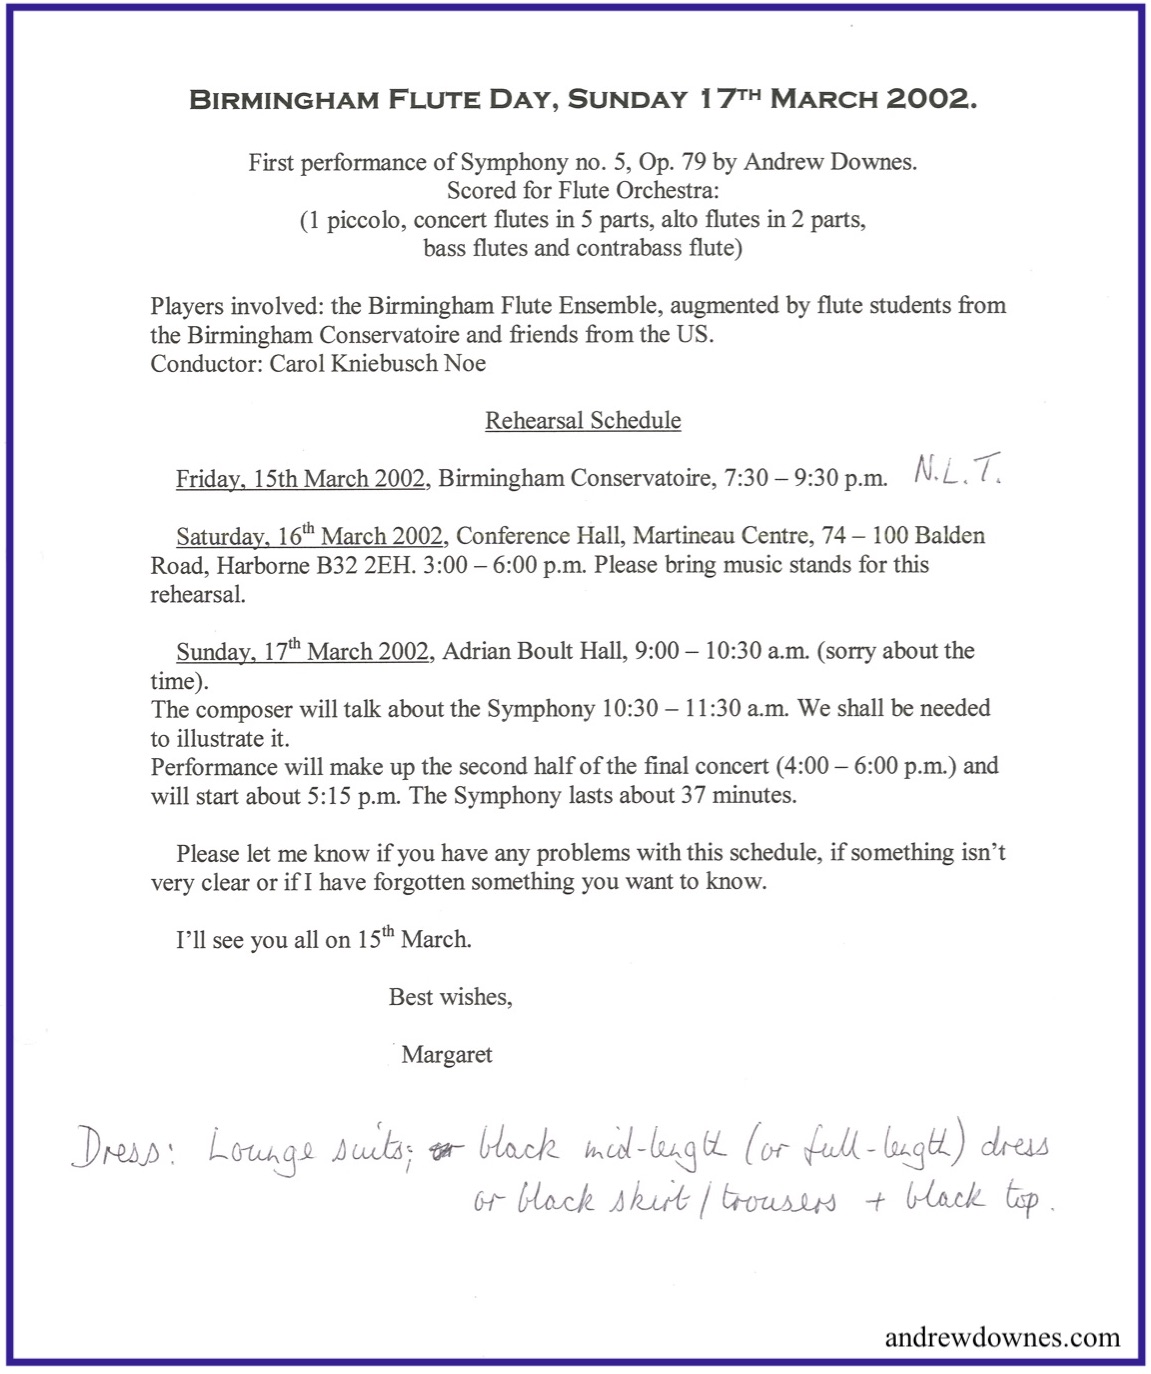 BIRMINGHAM FLUTE DAY, SUNDAY 17TH MARCH 2002.
First performance of Symphony no. 5, Op. 79 by Andrew Downes.
Scored for Flute Orchestra:
(1 piccolo, concert flutes in 5 parts, alto flutes in 2 parts,
bass flutes and contrabass flute)
Players involved: the Birmingham Flute Ensemble, augmented by flute students from
the Birmingham Conservatoire and friends from the US.
Conductor: Carol Kniebusch Noe
Rehearsal Schedule
Friday, 15th March 2002, Birmingham Conservatoire, 7:30 – 9:30 p.m. N.L.T.
Saturday, 16th March 2002, Conference Hall, Martineau Centre, 74 – 100 Balden
Road, Harborne B32 2EH. 3:00 – 6:00 p.m. Please bring music stands for this
rehearsal.
Sunday, 17th March 2002, Adrian Boult Hall, 9:00 – 10:30 a.m. (sorry about the
time).
The composer will talk about the Symphony 10:30 – 11:30 a.m. We shall be needed
to illustrate it.
Performance will make up the second half of the final concert (4:00 – 6:00 p.m.) and
will start about 5:15 p.m. The Symphony lasts about 37 minutes.
Please let me know if you have any problems with this schedule, if something isn't
very clear or if I have forgotten something you want to know.
I'll see you all on 15th March.
Best wishes,
Margaret
Dress: Lounge suits; black mid-length (or full-length) dress
or black skirt/trousers + black top.
andrewdownes.com